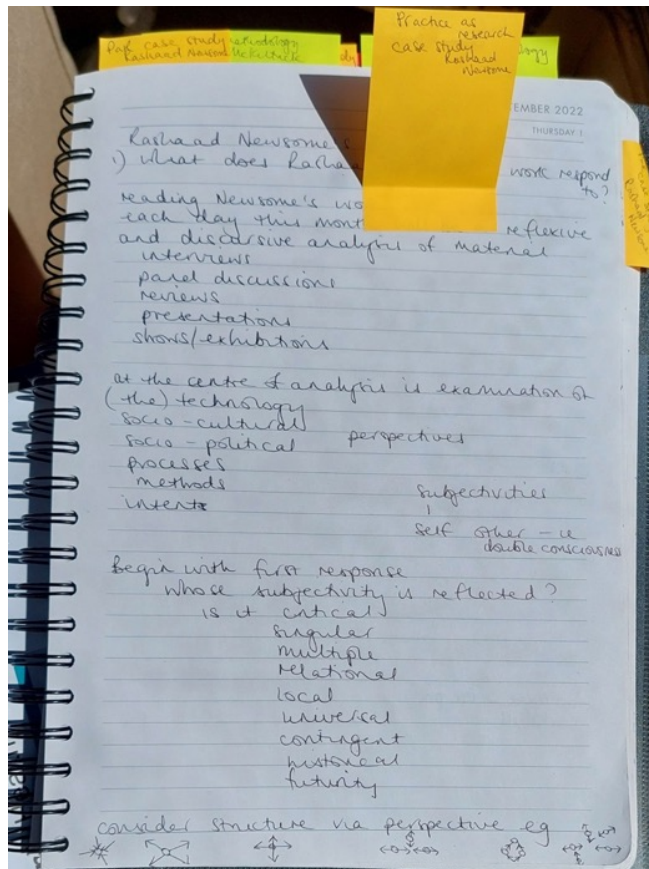 Practice as
research
case study
Rashaad
Newsome
case study
Rashaad
EMBER 2022
THURSDAY 1
Rashaad Newsome's
1) what does Rashaa work respond
to?
reading Newsome's wo
each day this mont reflexive
and discursive analysis of material
interviews
panel discussions
reviews
presentations
shows/exhibitions
at the centre of analysis is examination of
(the) technology
socio-cultural
socio-political perspectives
processes
methods
intents
subjectivities
self other - ie
double consciousness
Begin with first response
whose subjectivity is reflected?
is it critical
singular
multiple
relational
local
universal
contingent
historical
futurity
consider structure via perspective eg